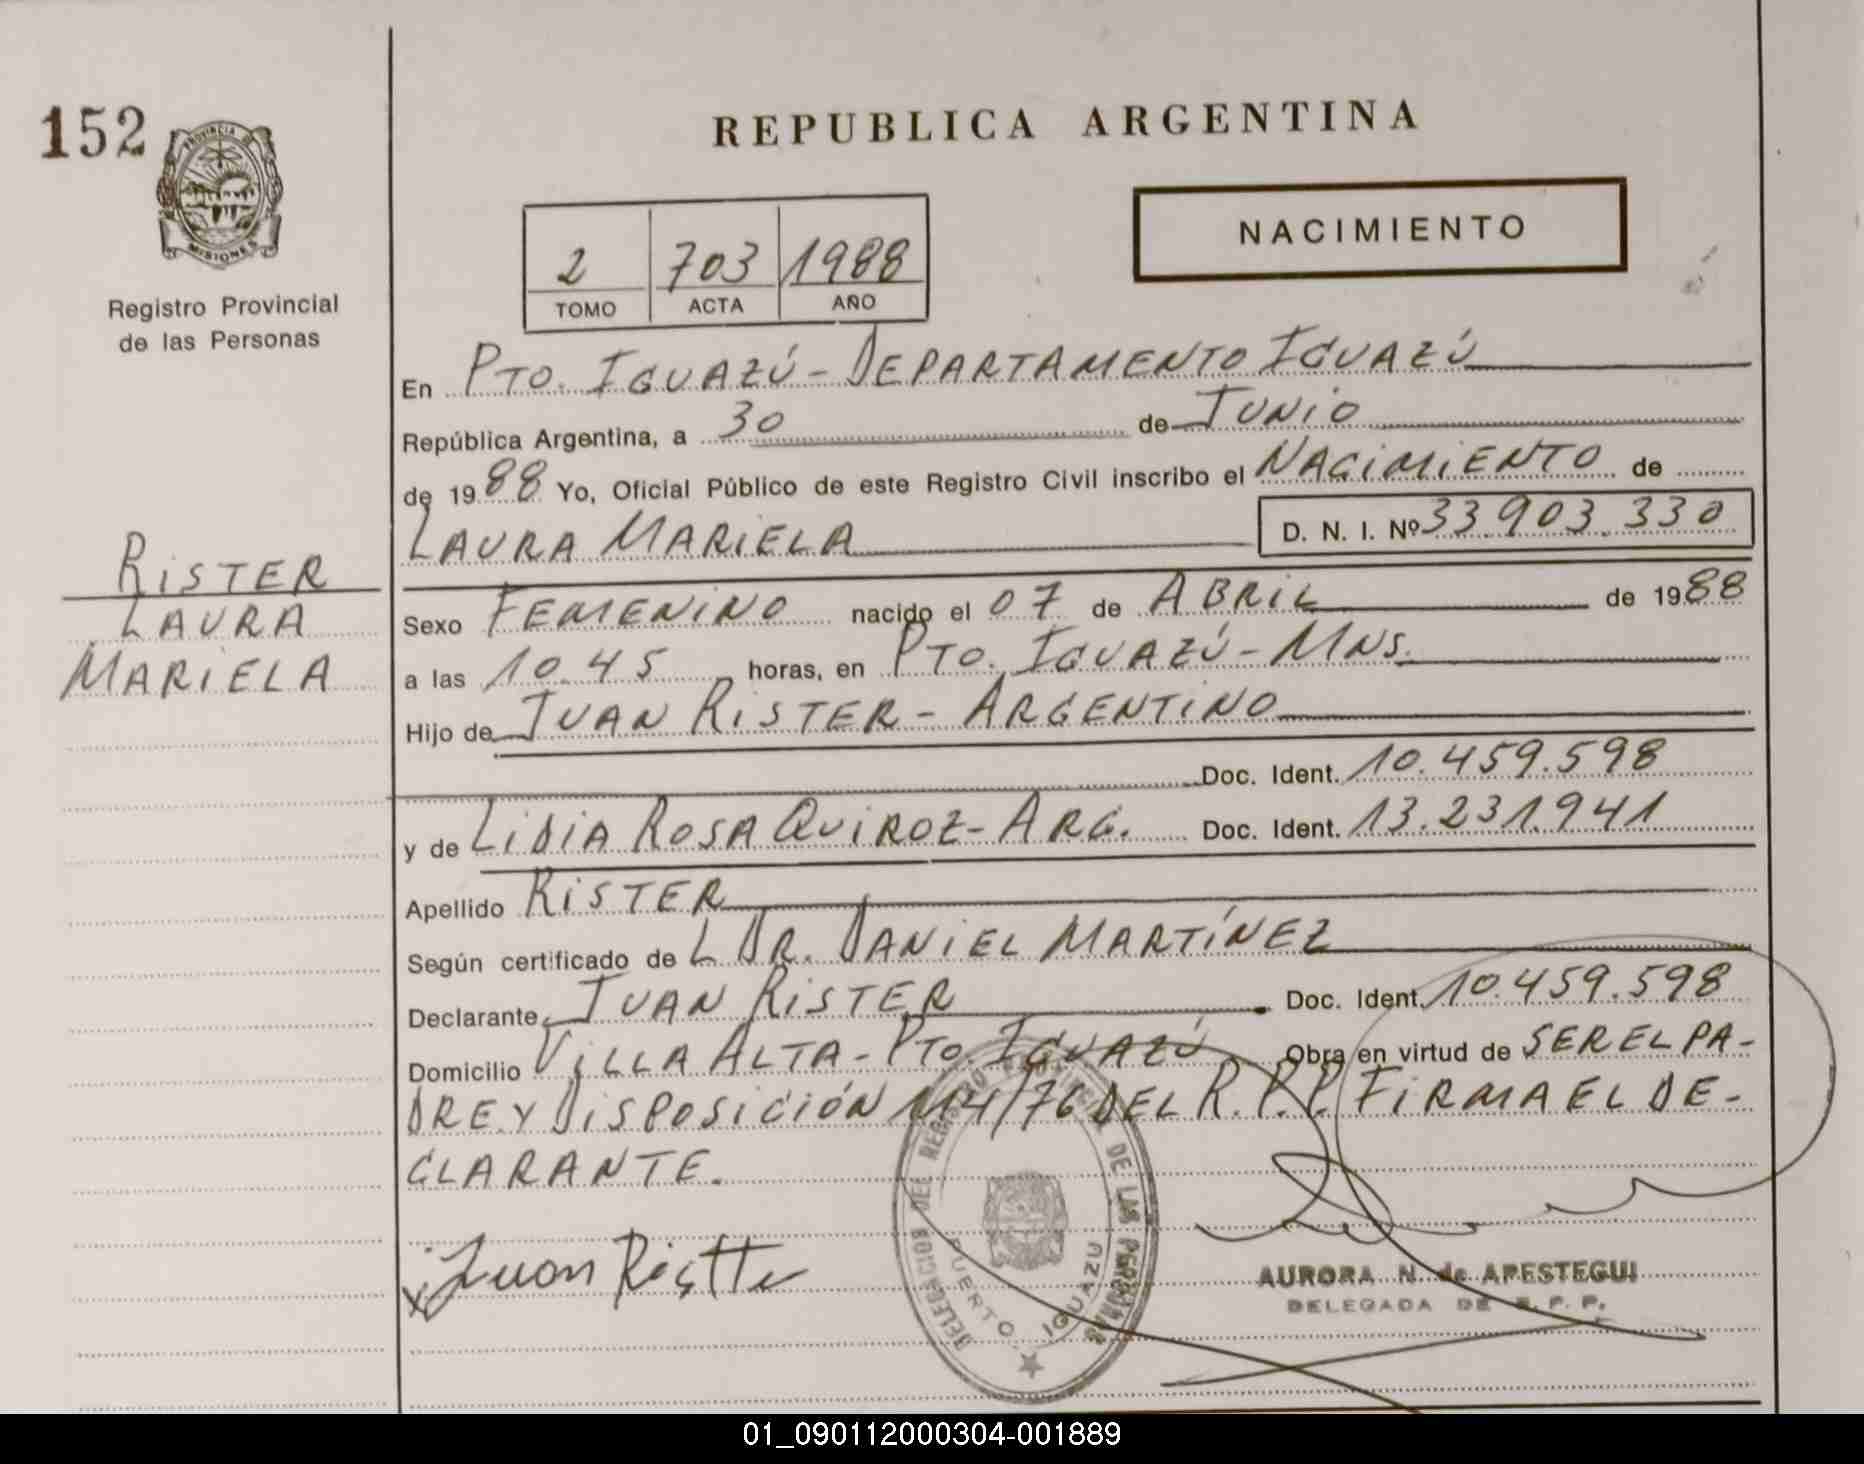 152
PROVINCIA DE
MISIONES
Registro Provincial
de las Personas
RISTER
LAURA
MARIELA
REPUBLICA ARGENTINA
NACIMIENTO
2 703 1988
TOMO ACTA AÑO
En PTO. IGUAZÚ - DEPARTAMENTO IGUAZÚ
República Argentina, a 30 de JUNIO
de 1988 Yo, Oficial Público de este Registro Civil inscribo el NACIMIENTO de
LAURA MARIELA D. N. I. Nº 33.903.330
Sexo FEMENINO nacido el 07 de ABRIL de 1988
a las 10.45 horas, en PTO. IGUAZÚ - MNS.
Hijo de JUAN RISTER - ARGENTINO
Doc. Ident. 10.459.598
y de LIDIA ROSA QUIROZ - ARG. Doc. Ident. 13.231.941
Apellido RISTER
Según certificado de L DR. DANIEL MARTÍNEZ
Declarante JUAN RISTER Doc. Ident. 10.459.598
Domicilio VILLA ALTA - PTO. IGUAZÚ Obra en virtud de SER EL PA-
DRE Y DISPOSICIÓN 114/76 DEL R.P.P. FIRMA EL DE-
CLARANTE.
Juan
DELEGACION DEL REGISTRO PROVINCIAL DE LAS PERSONAS
PUERTO IGUAZU
AURORA N. de APESTEGUI
DELEGADA DE R. P. P.
01_090112000304-001889